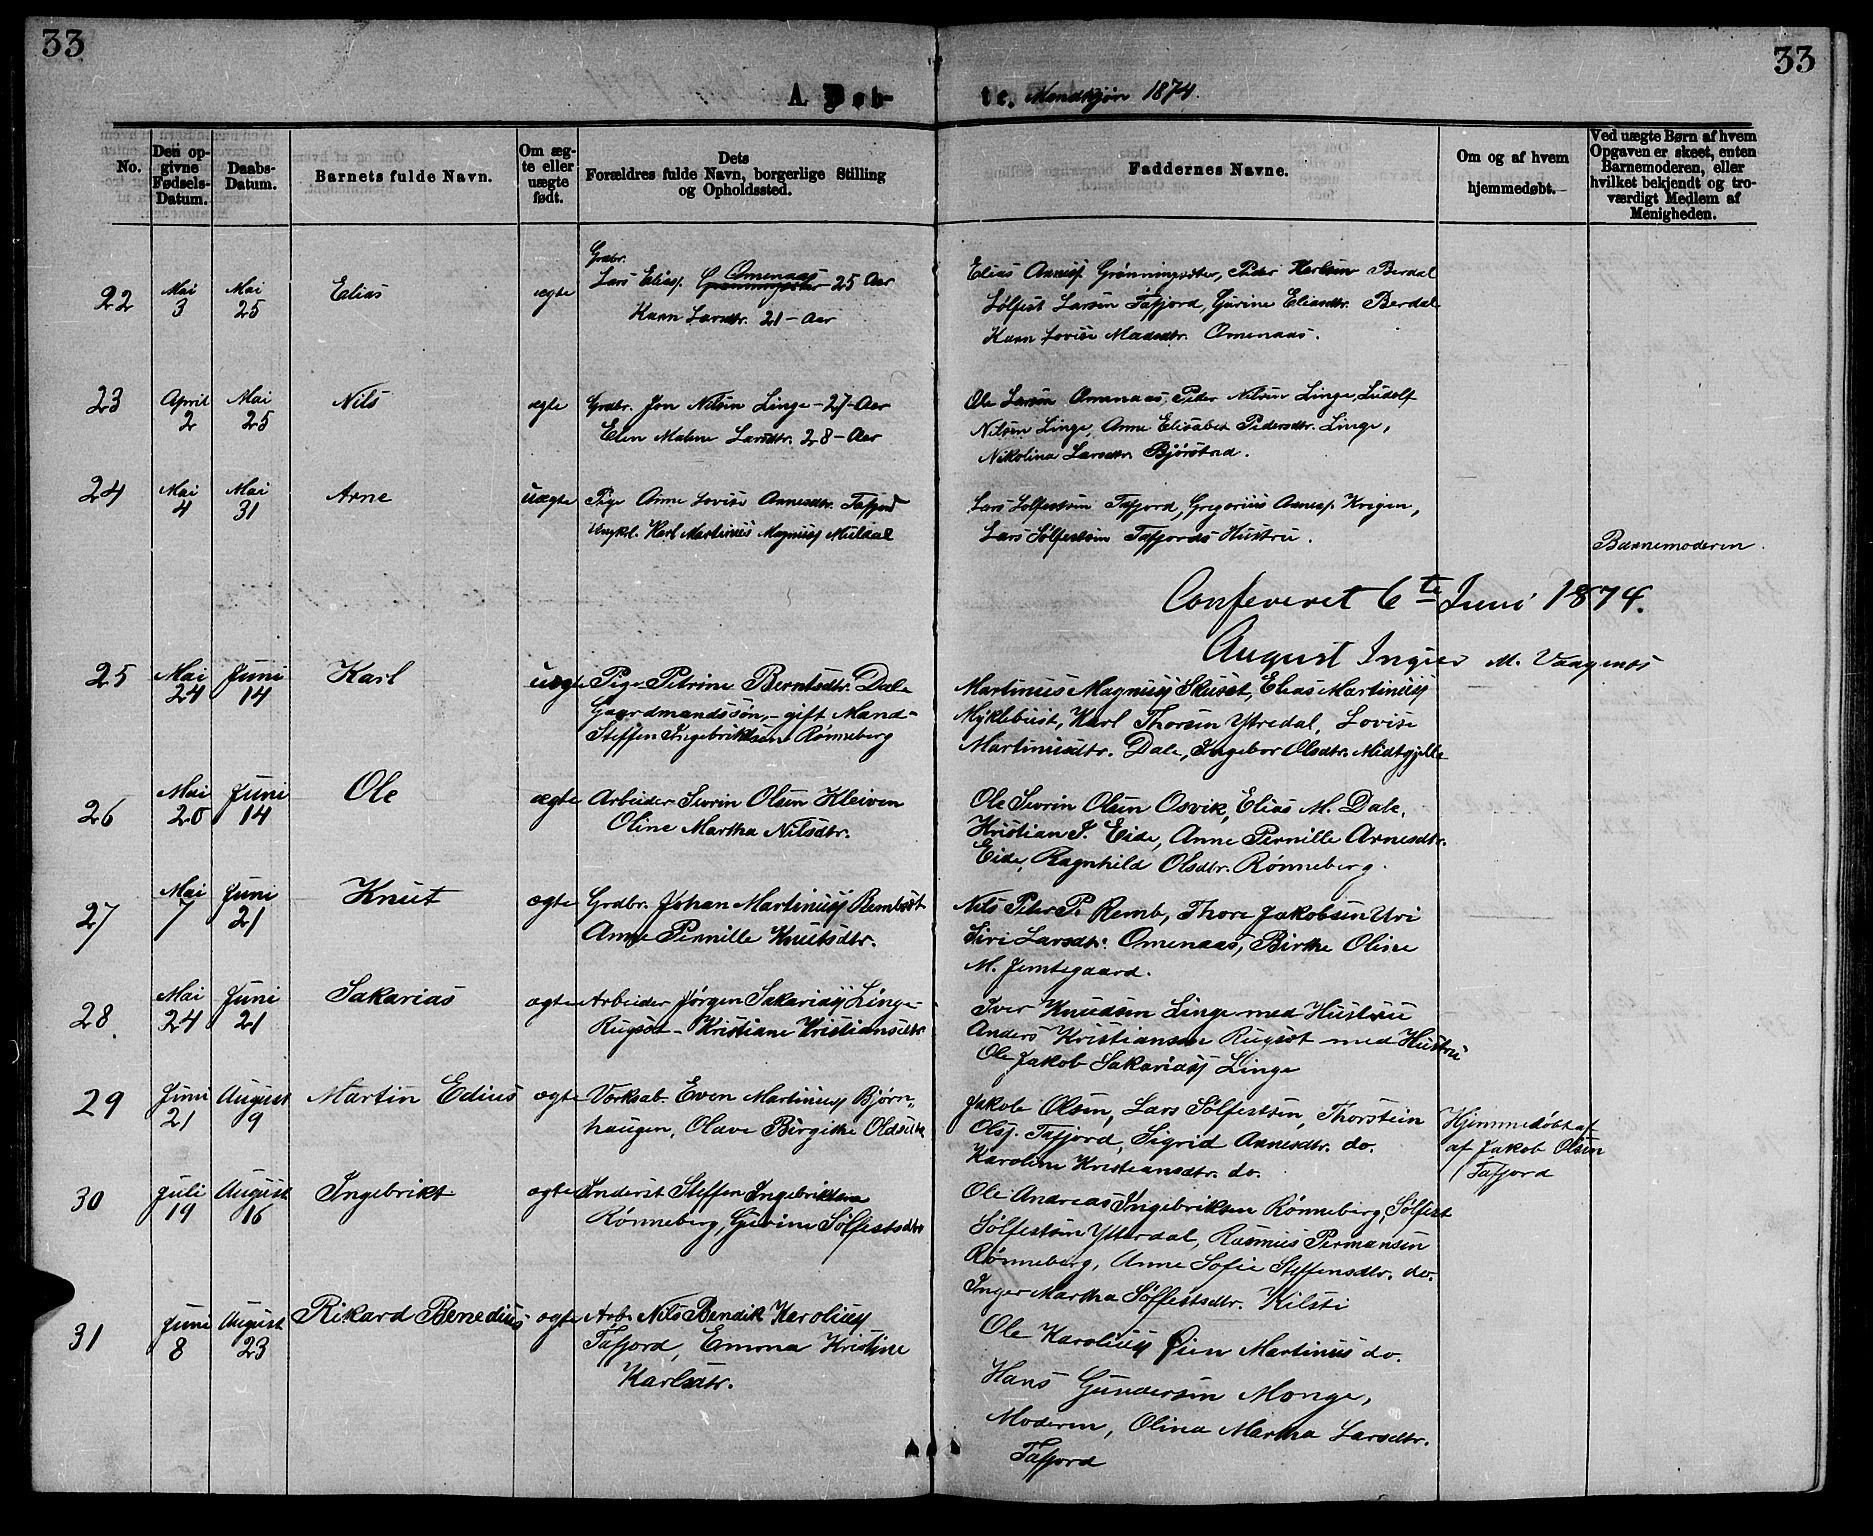 33
33
A. Døb-
te. Mandkjøn 1874.
No.
Den op-
givne
Fødsels-
Datum.
Daabs-
Datum.
Barnets fulde Navn.
Om æg-
te eller
uægte
født.
Dets
Forældres fulde Navn, borgerlige Stilling
og Opholdssted.
Faddernes Navne.
Om og af hvem
hjemmedøbt.
Ved uægte Børn af hvem
Opgaven er skeet, enten
Barnemoderen, eller
hvilket bekjendt og tro-
værdigt Medlem af
Menigheden.
22 Mai 3 Mai 25 Elias ægte
Grdbr.
Lars Eliass. Omenaas 25 Aar
Karn Larsdtr. 21 - Aar
Elias Arness. Grønningsæter, Peder Karlsen Berdal
Sølfest Larsen Tafjord, Gurine Eliasdtr. Berdal
Karn Lovise Madsdtr. Omenaas.
23 April 2 Mai 25 Nils ægte
Grdbr. Jon Nilsen Linge - 27 - Aar
Elen Maline Larsdtr. 28 - Aar
Ole Larsen Omenaas, Peder Nilsen Linge, Ludolf
Nilsen Linge, Anne Elisabet Pedersdtr. Linge,
Nikolina Larsdtr. Bjørstad.
24 Mai 4 Mai 31 Arne uægte
Pige Anne Lovise Arnesdtr. Tafjord
Ungkl. Karl Martinus Magnuss Muldal
Lars Sølfestsøn Tafjord, Gregorius Arness. Krigen,
Lars Sølfestsøn Tafjords Hustru.
Barnemoderen.
Confereret 6te Juni 1874.
August Ingier M. Vaagenes
25 Mai 24 Juni 14 Karl uægte
Pige Petrine Berntsdtr. Dale
Gaardmandssøn, - gift Mand -
Steffen Ingebriktsen Rønneberg
Martinus Magnuss Skuset, Elias Martinuss
Myklebust, Karl Thorsen Ytredal, Lovise
Martinusdtr. Dale, Ingebor Olsdtr. Midtgjelle
26 Mai 20 Juni 14 Ole ægte
Arbeider Sevrin Olsen Kleiven
Oline Martha Nilsdtr.
Ole Sevrin Olsen Osvik, Elias M. Dale,
Kristian S. Eide, Anne Pernille Arnesdtr.
Eide, Ragnhild Olsdtr. Rønneberg.
27 Mai 7 Juni 21 Knut ægte
Grdbr. Johan Martinuss Rembsøt
Anne Pernille Knutsdtr.
Nils Peter P. Remb, Thore Jakobsen Uri
Siri Larsdtr. Omenaas, Birthe Oline
M. Jemtegaard.
28. Mai 24 Juni 21 Sakarias ægte
Arbeider Jørgen Sakariass Linge-
Rugsøt - Kristiane Kristiansdtr
Iver Knudsen Linge med Hustru
Anders Kristiansen Rugsøt med Hustru
Ole Jakob Sakariass Linge
29 Juni 21 August 9 Martin Edius ægte
Vorksab. Even Martinuss Bjørn-
haugen, Olave Birgithe Oldsdtr
Jakob Olsen, Lars Sølfestsøn, Thorstein
Ols. Tafjord, Sigrid Arnesdtr. do.
Karoline Kristiansdtr. do.
Hjemmedøbt af
af Jakob Olsen
Tafjord
30 Juli 19 August 16 Ingebrikt ægte
Inderst Steffen Ingebriktsen
Rønneberg, Gurine Sølfestsdtr
Ole Andreas Ingebriktsen Rønneberg, Sølfest
Sølfestsøn Ytterdal, Rasmus Permansen
Rønneberg, Anne Sofie Steffensdtr. do.
Inger Martha Sølfestsdtr. Kilsti
31 Juni 8 August 23 Rikard Benedius ægte
Arb. Nils Bendik Karoliuss
Tafjord, Emma Kristine
Karlsdtr.
Ole Karoliuss Øien Martinus do.
Hans Gundersen Monge,
Moderen, Olina Martha Larsdtr.
Tafjord